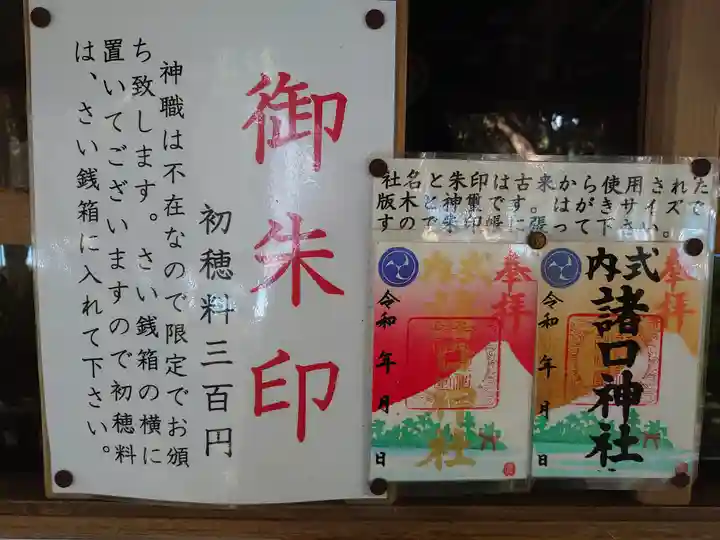 御朱印
初穂料三百円
神職は不在なので限定でお頒
ち致します。さい銭箱の横に
置いてございますので初穂料
は、さい銭箱に入れて下さい。
社名と朱印は古来から使用された
版木と神璽です。はがきサイズで
すので朱印帳に張って下さい。
奉拝
式内
諸口神社
令和 年 月 日
奉拝
式内
諸口神社
令和 年 月 日